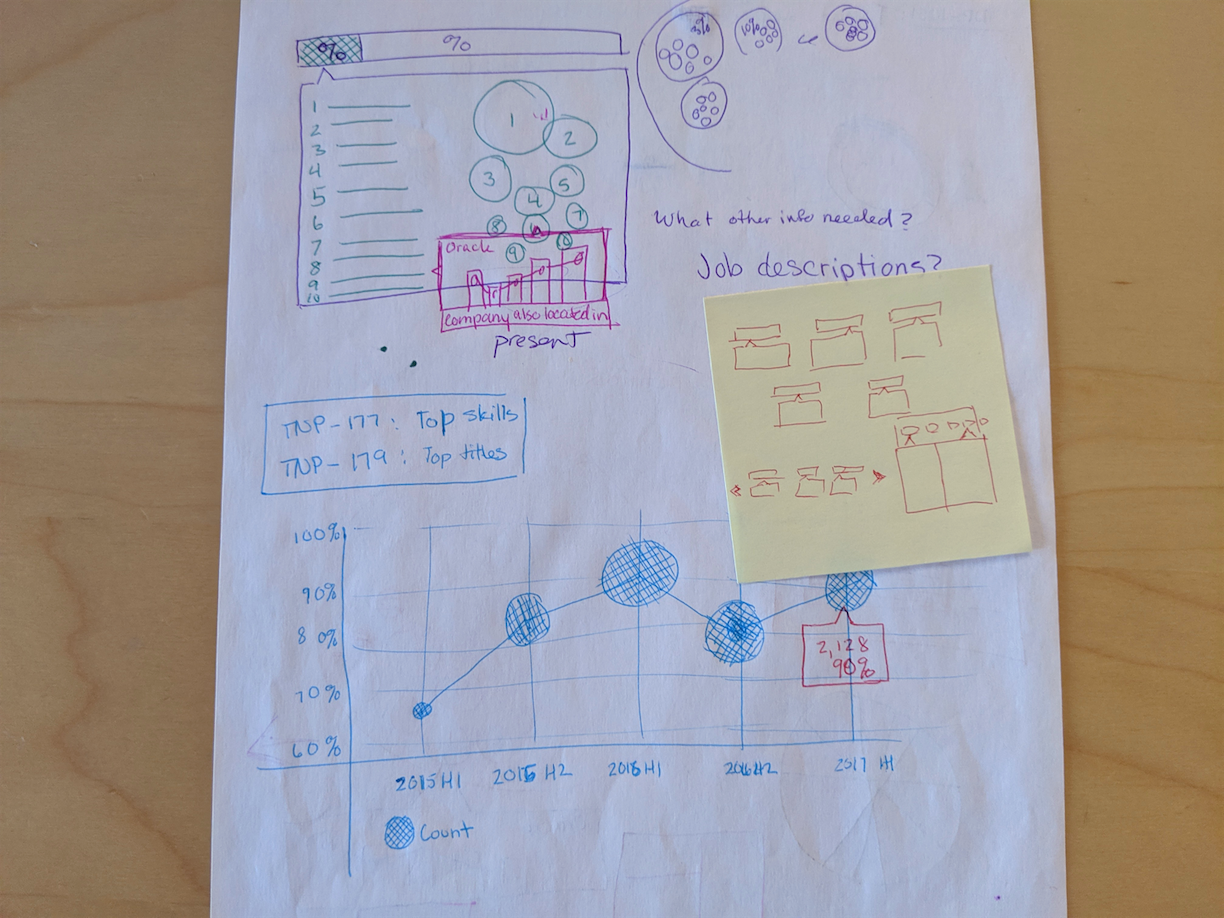 %
%
%
10%
1
2
3
4
5
6
7
8
9
10
1
2
3
5
4
7
8
9
10
Oracle
Company also located in
present
What other info needed?
Job descriptions?
TNP-177: Top skills
TNP-179: Top titles
100%
90%
80%
70%
60%
2,128
90%
2015 H1
2015 H2
2016 H1
2016 H2
2017 H1
Count